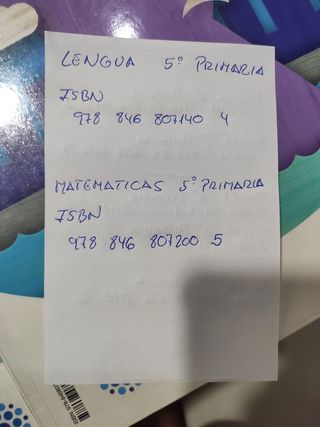 LENGUA 5º PRIMARIA
ISBN
978 846 807140 4
MATEMATICAS 5º PRIMARIA
ISBN
978 846 807200 5